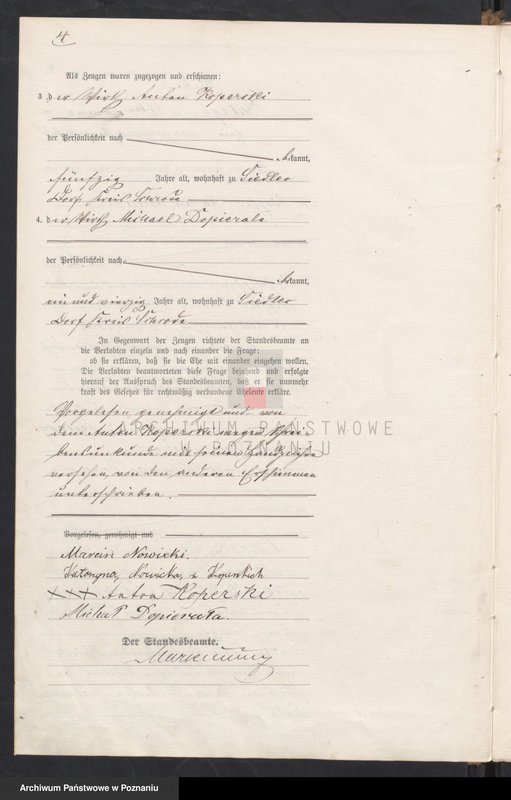 4
Als Zeugen waren zugezogen und erschienen:
3. der Wirth Anton Koperski
der Persönlichkeit nach
bekannt,
fünfzig Jahre alt, wohnhaft zu Siedlec
Dorf Kreis Schroda
4. der Wirth Michael Dopierala
der Persönlichkeit nach
bekannt,
ein und vierzig Jahre alt, wohnhaft zu Siedlec
Dorf Kreis Schroda
In Gegenwart der Zeugen richtete der Standesbeamte an
die Verlobten einzeln und nach einander die Frage:
ob sie erklären, daß sie die Ehe mit einander eingehen wollen.
Die Verlobten beantworteten diese Frage bejahend und erfolgte
hierauf der Ausspruch des Standesbeamten, daß er sie nunmehr
kraft des Gesetzes für rechtmäßig verbundene Eheleute erkläre.
Vorgelesen genehmigt und von
dem Anton Koperski wegen Schrei-
bensunkunde mit seinem Handzeichen
versehen, von den anderen Erschienenen
unterschrieben.
ARCHIWUM PAŃSTWOWE
W POZNANIU
Vorgelesen, genehmigt und
Marcin Nowicki.
Katarzyna Nowicka, z Koperskich
XXX Anton Koperski
Michał Dopierała.
Der Standesbeamte.
Archiwum Państwowe w Poznaniu